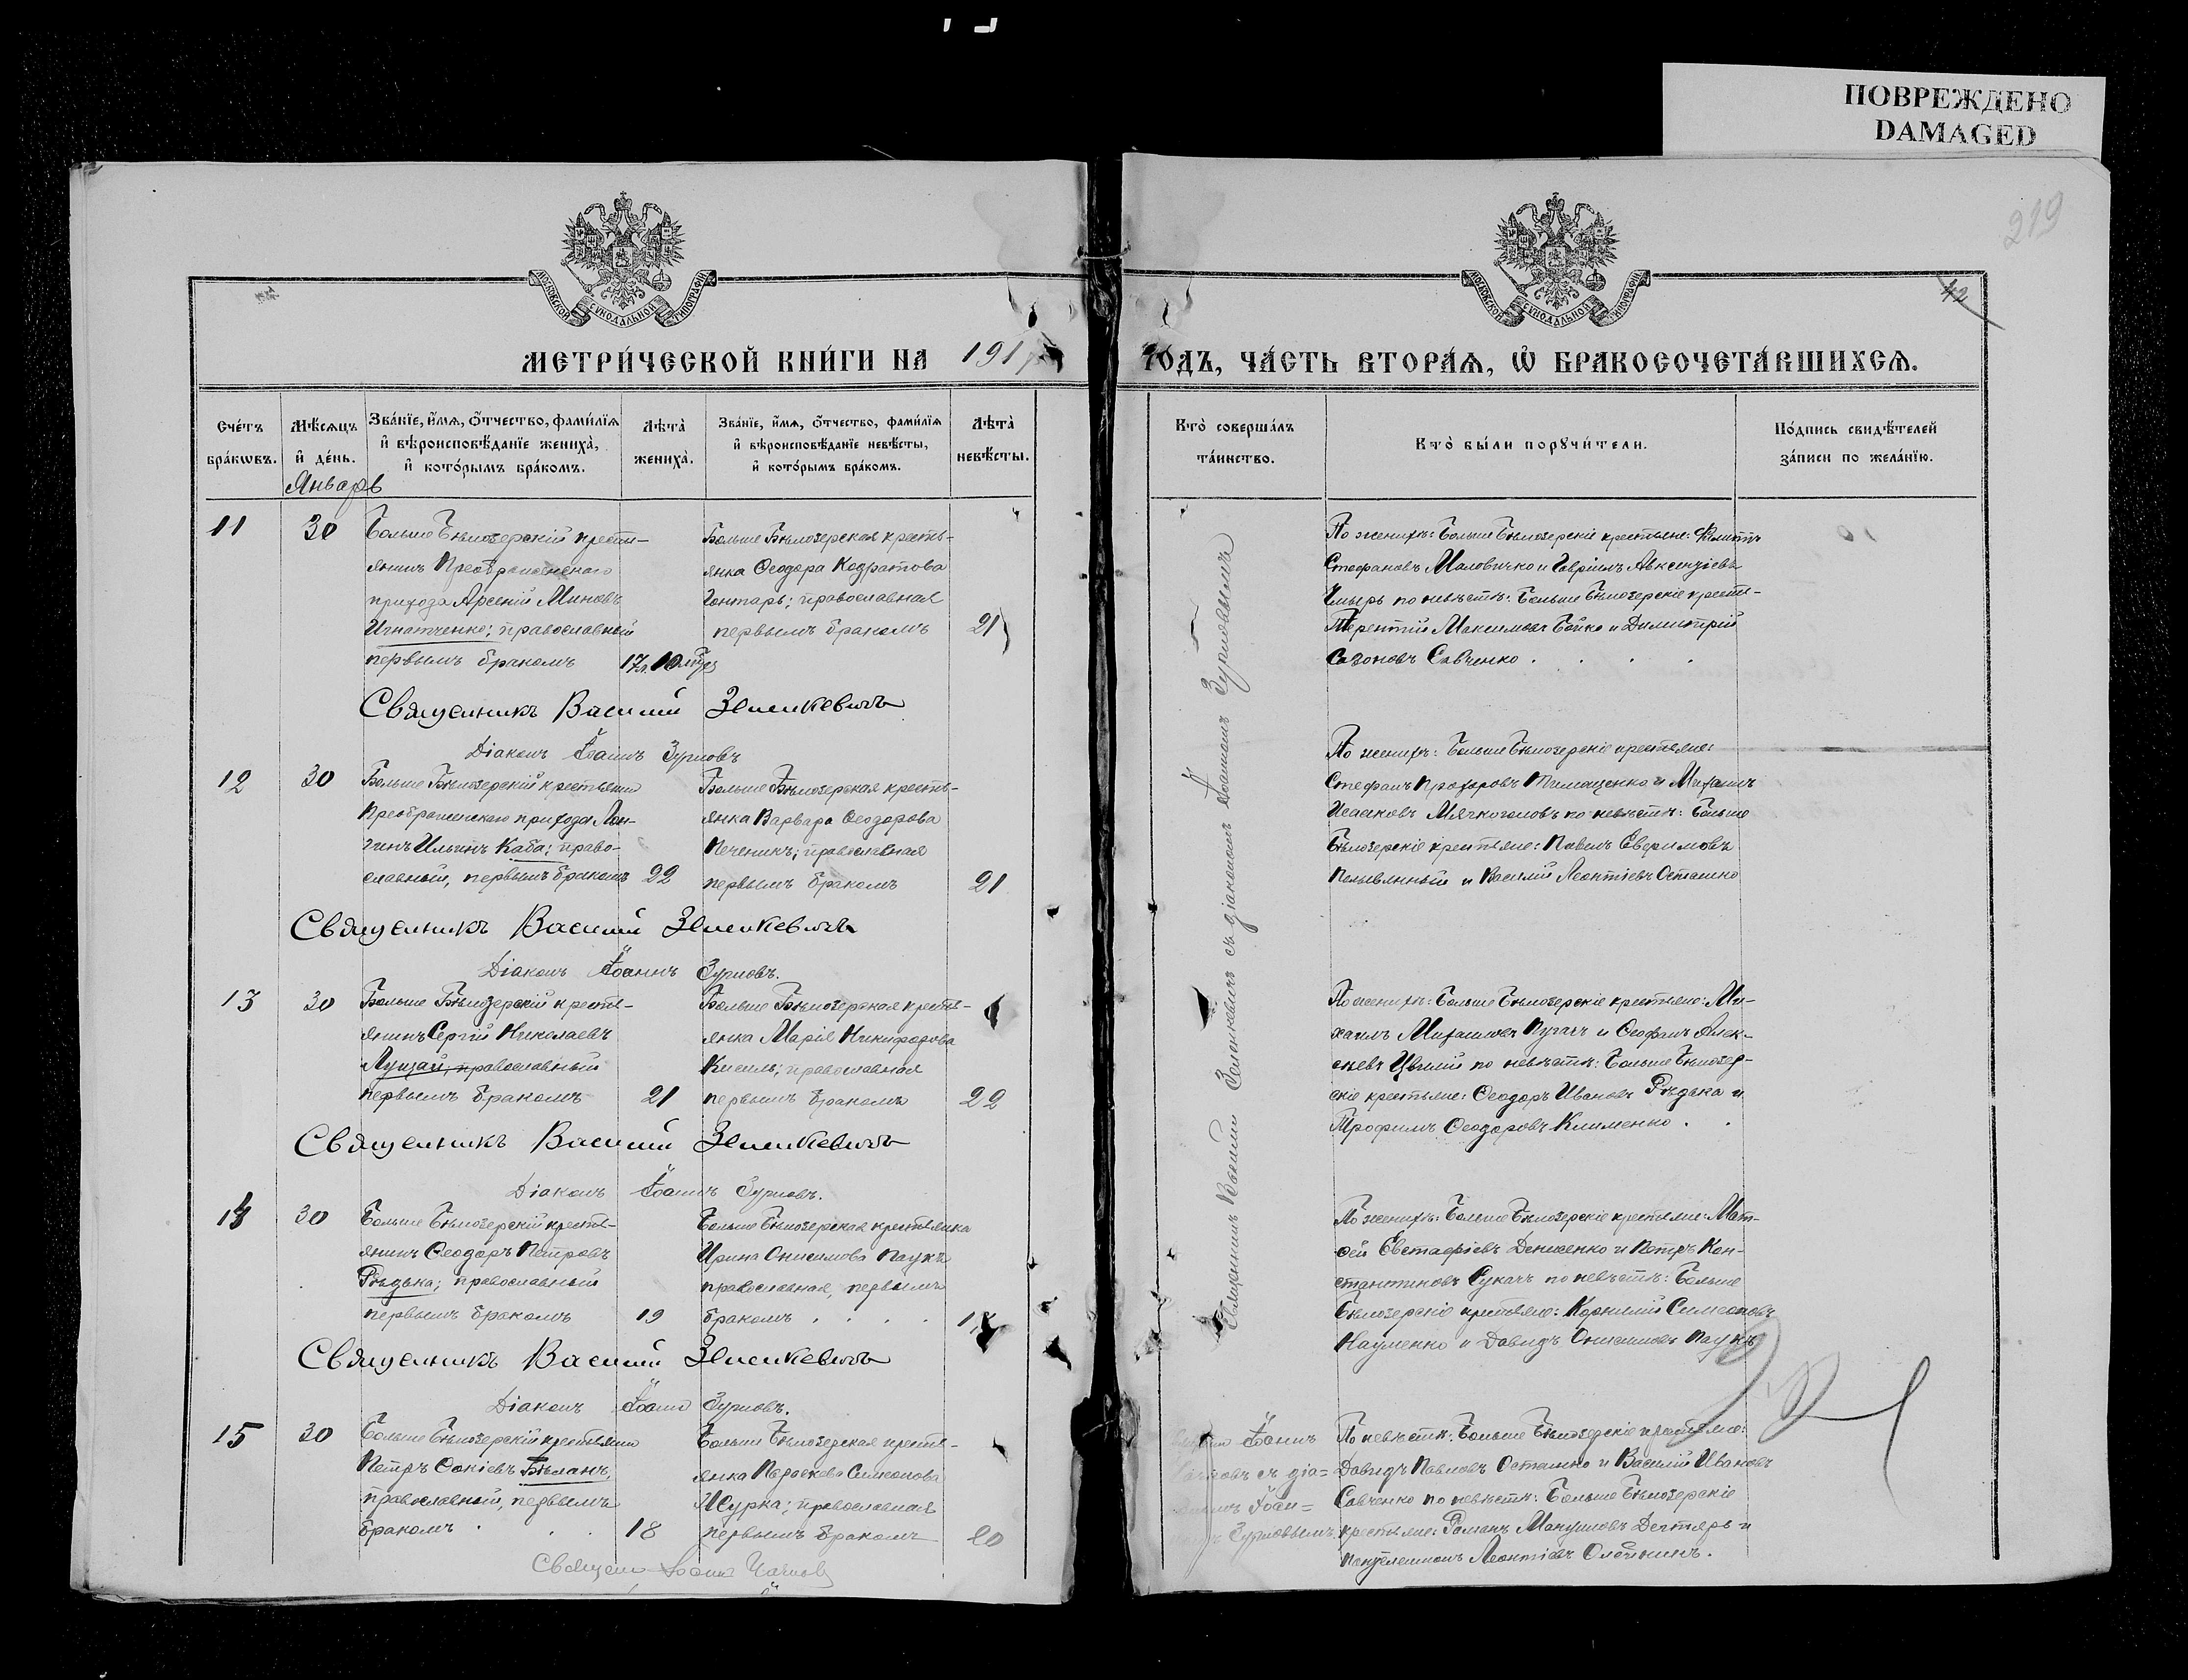 ПОВРЕЖДЕНО
DAMAGED
219
42
МОСКОВСКОЙ СѴНОДАЛЬНОЙ ТИПОГРАФІИ
МОСКОВСКОЙ СѴНОДАЛЬНОЙ ТИПОГРАФІИ
МЕТРИ́ЧЕСКОЙ КНИ́ГИ НА 191
ГОДЪ, ЧА́СТЬ ВТОРА́Ѧ, Ѽ БРАКОСОЧЕТА́ВШИХСѦ.
Сче́тъ бра́кѡвъ.
Мѣ́сѧцъ и҆ де́нь.
Зва́нїе, и҆́мѧ, ѻ҆́тчество, фами́лїѧ и҆ вѣроисповѣ́данїе жениха̀, и҆ кото́рымъ бра́комъ.
Лѣ́та̀ жениха̀.
Зва́нїе, и҆́мѧ, ѻ҆́тчество, фами́лїѧ и҆ вѣроисповѣ́данїе невѣ́сты, и҆ кото́рымъ бра́комъ.
Лѣ́та̀ невѣ́сты.
Кто̀ соверша́лъ та́инство.
Кто̀ бы́ли порꙋчи́тели.
По́дпись свидѣ́телей за́писи по жела́нїю.
Январь
11
30
Больше Бѣлозерскій крестья-
янинъ Преображенскаго
прихода Арсеній Миновъ
Игнатченко; православный
первымъ бракомъ
17л. 10
Больше Бѣлозерская кресть-
янка Ѳеодора Кодратова
Гонтарь; православная
первымъ бракомъ
21
По женихѣ: Больше Бѣлозерскіе крестьяне: Филиппъ
Стефановъ Маловичко и Гавріилъ Авксентіевъ
Чмырь по невѣстѣ: Больше Бѣлозерскіе кресть-
Терентій Максимовъ Бойко и Димитрій
Сазоновъ Савченко
Священникъ Василій Зеленкевичъ
Діаконъ Іоаннъ Зурновъ
12
30
Больше Бѣлозерскій крестьянинъ
Преображенскаго прихода Лон-
гинъ Ильинъ Каба; право-
славный, первымъ бракомъ
22
Больше Бѣлозерская кресть-
янка Варвара Ѳеодорова
Печеникъ; православная
первымъ бракомъ
21
По женихѣ: Больше Бѣлозерскіе крестьяне:
Стефанъ Прохоровъ Тимощенко и Михаилъ
Исааковъ Мягкоголовъ по невѣстѣ: Больше
Бѣлозерскіе крестьяне: Павелъ Евфимовъ
и Василій Леонтіевъ Осташко
Священникъ Василій Зеленкевичъ
Діаконъ Іоаннъ Зурновъ.
13
30
Больше Бѣлозерскій кресть-
янинъ Сергій Николаевъ
Лущай, православный
первымъ бракомъ
21
Больше Бѣлозерская кресть-
янка Марія Никифорова
Кисиль; православная
первымъ бракомъ
22
По женихѣ: Больше Бѣлозерскіе крестьяне: Ми-
хаилъ Михаиловъ Пугачъ и Ѳеофанъ Алек-
сѣевъ по невѣстѣ: Больше Бѣлозер-
скіе крестьяне: Ѳеодоръ Ивановъ Рѣдька и
Трофимъ Ѳеодоровъ Клименко
Священникъ Василій Зеленкевичъ
Діаконъ Іоаннъ Зурновъ.
14
30
Больше Бѣлозерскій кресть-
янинъ Ѳеодоръ Петровъ
Рѣдька; православный
первымъ бракомъ
19
Больше Бѣлозерская крестьянка
Ирина Онисимова Паукъ
православная, первымъ
бракомъ
По женихѣ: Больше Бѣлозерскіе крестьяне: Мат-
ѳей Евстафіевъ Денженко и Петръ Кон-
стантиновъ Сукачъ по невѣстѣ: Больше
Бѣлозерскіе крестьяне: Корнилій Симеоновъ
Науменко и Давидъ Онисимовъ Паукъ
Священникъ Василій Зеленкевичъ
Діаконъ Іоаннъ Зурновъ.
15
30
Больше Бѣлозерскій крестьянинъ
Петръ Ѳокіевъ Бѣланъ,
православный, первымъ
бракомъ
18
Больше Бѣлозерская кресть-
янка Параскева Симеонова
Журка; православная
первымъ бракомъ
20
По невѣстѣ: Больше Бѣлозерскіе крестьяне:
Давидъ Павловъ Осташко и Василій Ивановъ
Савченко по невѣстѣ: Больше Бѣлозерскіе
крестьяне: Романъ Дегтярь и
Пантелеимонъ Леонтіевъ Олейникъ.
Священникъ Василій Зеленкевичъ съ діакономъ Іоанномъ Зурновымъ
Іоаннъ
съ діа-
Зурновымъ
Священ Іоаннъ